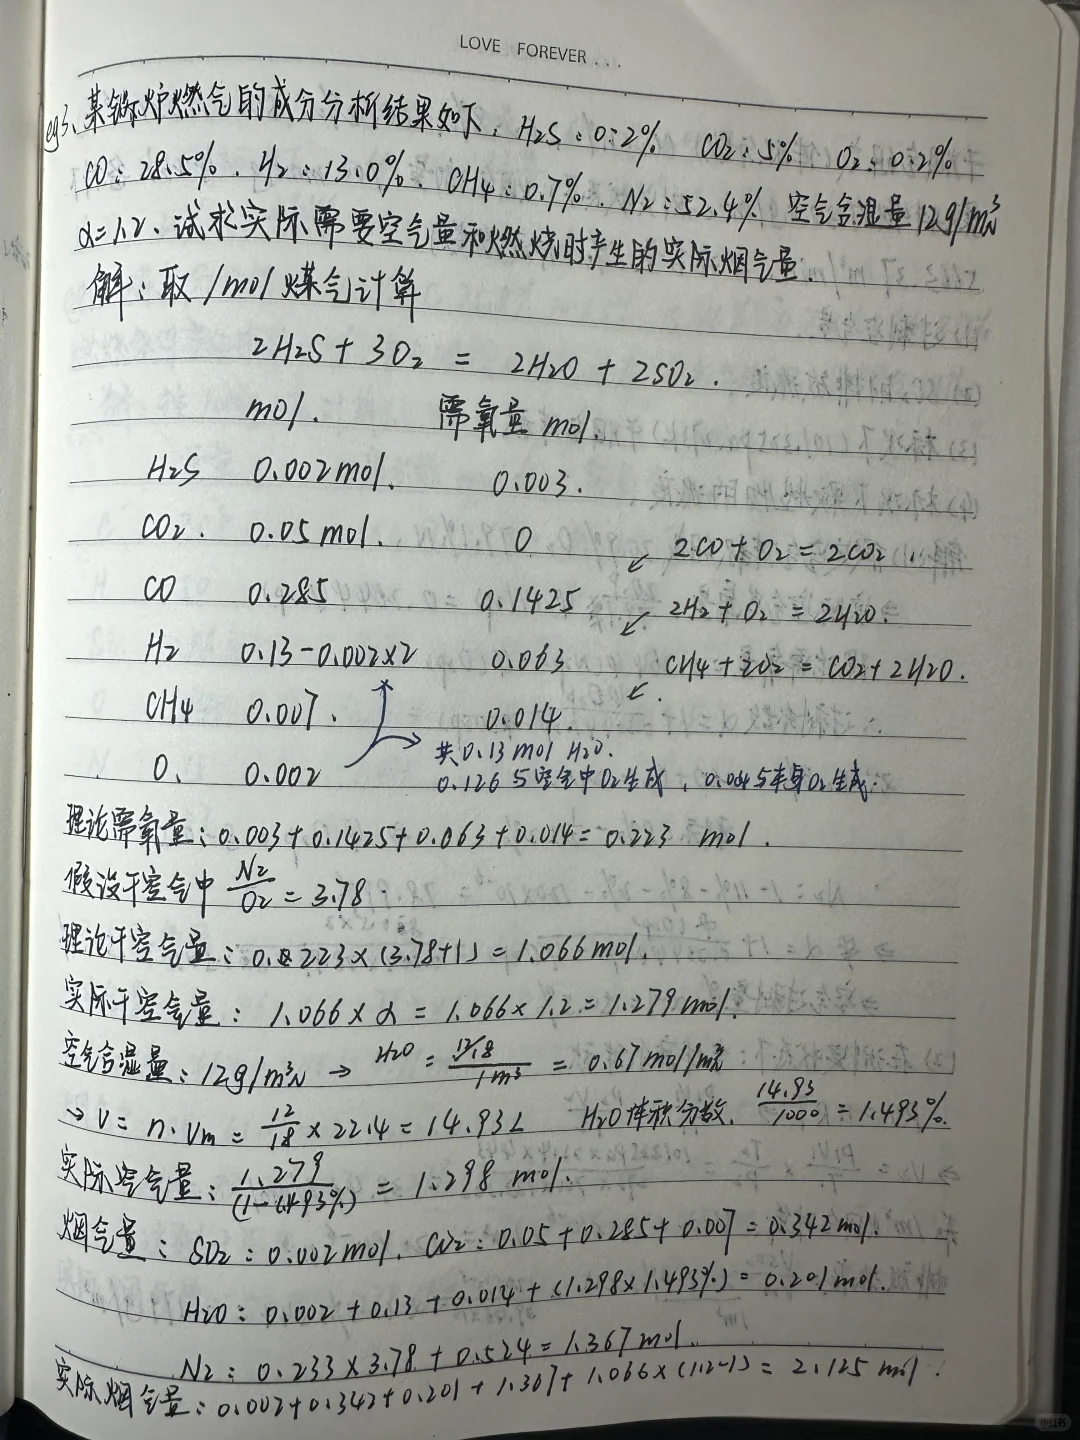 LOVE FOREVER...
eg3、某锅炉燃气的成分分析结果如下，H2S：0.2% CO2：5% O2：0.2%
CO：28.5%、H2：13.0%、CH4：0.7%、N2：52.4%、空气含湿量12g/m³N
α=1.2、试求实际需要空气量和燃烧时产生的实际烟气量.
解：取1mol煤气计算
2H2S + 3O2 = 2H2O + 2SO2.
mol. 需氧量 mol.
H2S 0.002mol. 0.003.
CO2. 0.05mol. 0 ↙ 2CO + O2 = 2CO2.
CO 0.285 0.1425 ↙ 2H2 + O2 = 2H2O.
H2 0.13-0.002×2 0.063 ↙ CH4 + 2O2 = CO2 + 2H2O.
CH4 0.007. 0.014.
O. 0.002 共0.13 mol H2O.
0.126与空气中O2生成，0.004与本身O2生成.
理论需氧量：0.003+0.1425+0.063+0.014=0.223 mol.
假设干空气中 N2/O2 = 3.78.
理论干空气量：0.223×(3.78+1)=1.066mol.
实际干空气量：1.066×α=1.066×1.2=1.279mol.
空气含湿量：12g/m³N → H2O = 12/18/1m³ = 0.67mol/m³N
→ V = n·Vm = 12/18 × 22.4 = 14.93L H2O体积分数. 14.93/1000 = 1.493%.
实际空气量：1.279/(1-1.493%) = 1.298 mol.
烟气量：SO2：0.002mol. CO2：0.05+0.285+0.007=0.342mol.
H2O：0.002+0.13+0.014+(1.298×1.493%)=0.201mol.
N2：0.233×3.78+0.524=1.367mol.
实际烟气量：0.002+0.342+0.201+1.367+1.066×(1.2-1)=2.125 mol.
小红书